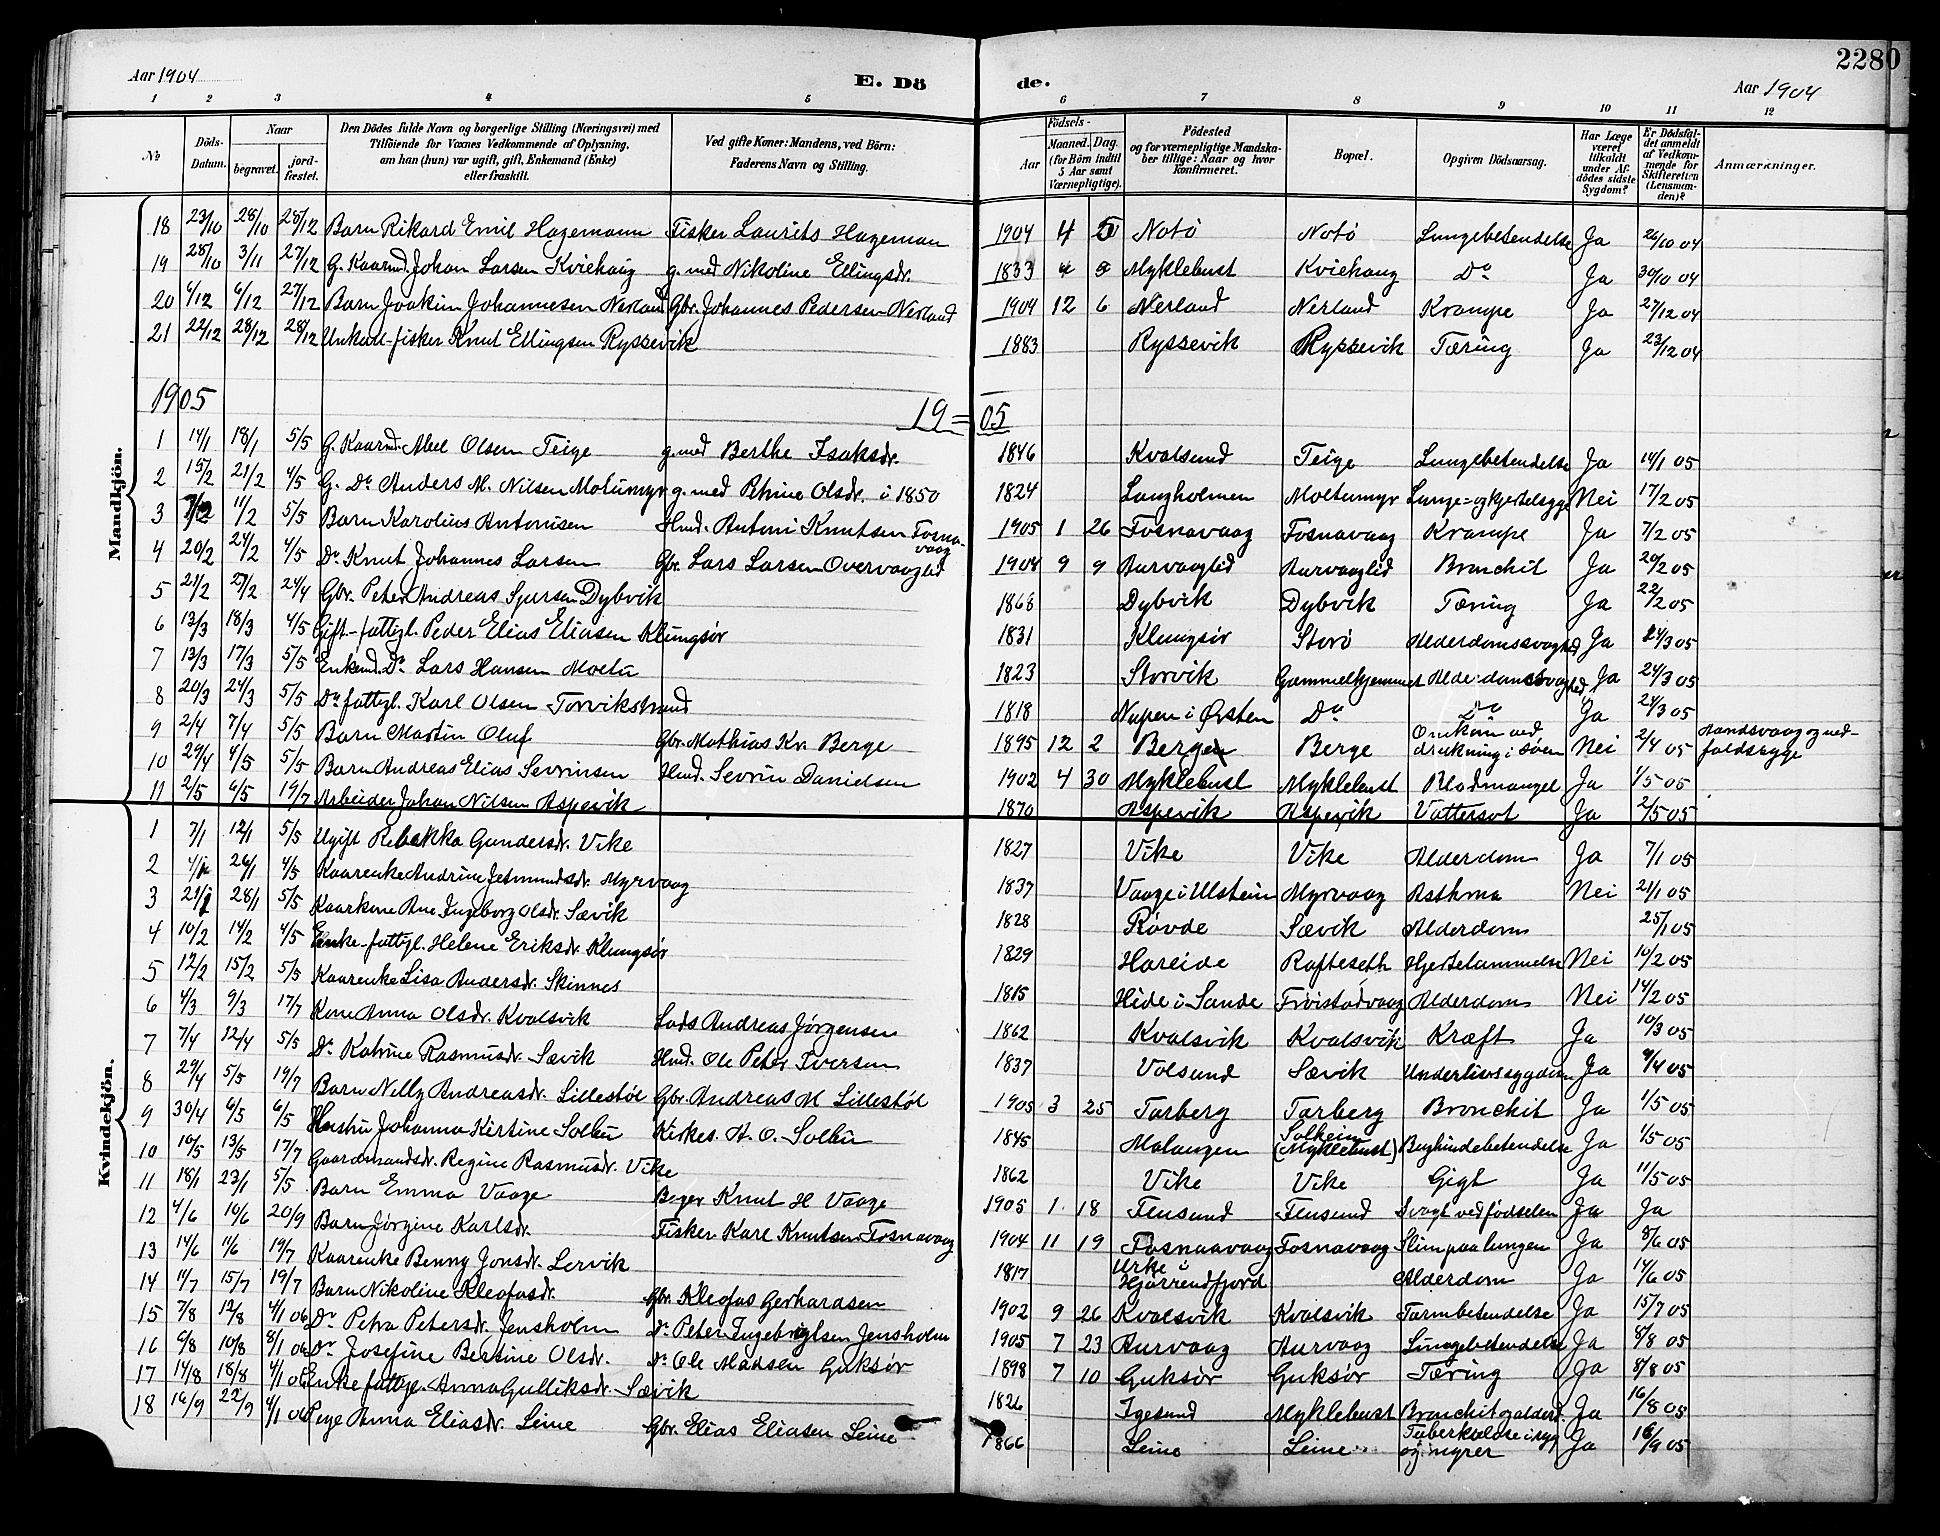 2280
Aar 1904 E. Dö de. Aar 1904
1 2 3 4 5 6 7 8 9 10 11 12
No Döds-Datum. Naar begravet. jordfæstet. Den Dödes fulde Navn og borgerlige Stilling (Næringsvei) med Tilföiende for Voxnes Vedkommende af Oplysning, om han (hun) var ugift, gift, Enkemand (Enke) eller fraskilt. Ved gifte Koner: Mandens, ved Börn: Faderens Navn og Stilling. Födsels- Aar Maaned. Dag. (for Börn indtil 5 Aar samt Værnepligtige). Födested og for værnepligtige Mandskaber tillige: Naar og hvor konfirmeret. Bopæl. Opgiven Dödsaarsag. Har Læge været tilkaldt under Afdödes sidste Sygdom? Er Dödsfaldet anmeldt af Vedkommende for Skifteretten (Lensmanden)? Anmærkninger.
Mandkjön.
18 23/10 28/10 28/12 Barn Rikard Emil Hagemann Fisker Laurits Hageman 1904 4 5 Notö Notö Lungebetendelse Ja 26/10 04
19 28/10 3/11 27/12 G. Kaarmd. Johan Larsen Kviehaug g. med Nikoline Ellingsdr. 1833 Myklebust Kviehaug Do Ja 30/10 04
20 4/12 6/12 27/12 Barn Joakim Johannesen Nerland Gbr. Johannes Pedersen Nerland 1904 12 6 Nerland Nerland Krampe Ja 27/12 04
21 22/12 28/12 28/12 Unkarl-fisker Knut Ellingsen Ryssevik 1883 Ryssevik Ryssevik Tæring Ja 23/12 04
1905 19=05
1 14/1 18/1 5/5 G. Kaarmd. Abel Olsen Teige g. med Berthe Isaksdr. 1846 Kvalsund Teige Lungebetendelse Ja 14/1 05
2 15/2 21/2 4/5 G. Do Anders M. Nilsen Motumyr g. med Petrine Olsdr. i 1850 1824 Langholmen Moltumyr Lunge= og hjertelegge Nei 17/2 05
3 7/2 11/2 5/5 Barn Karolius Antonisen Hmd. Antoni Knutsen Fosnavaag 1905 1 26 Fosnavaag Fosnavaag Krampe Ja 7/2 05
4 20/2 24/2 4/5 Do Knut Johannes Larsen Gbr. Lars Larsen Overvaaglid 1904 9 9 Aurvaaglid Aurvaaglid Bronchit Ja 20/2 05
5 21/2 27/2 24/4 Gbr. Peter Andreas Sjursen Dybvik 1868 Dybvik Dybvik Tæring Ja 22/2 05
6 13/3 18/3 4/5 Gift-fattigl. Peder Elias Eliasen Klungsör 1831 Klungsör Storö Alderdomssvaghed Ja 24/3 05
7 13/3 17/3 5/5 Enkemd. Do Lars Hansen Moltu 1823 Storvik Gammelhjemmet Alderdomssvaghed Ja 24/3 05
8 20/3 24/3 5/5 Do fattigl. Karl Olsen Torvikstrand 1818 Nupen i Örsten Do Do Ja 24/3 05
9 2/4 7/4 5/5 Barn Martin Oluf Gbr. Mathias Kr. Berge 1895 12 2 Berge Berge Omkom ved drukning i söen Nei 2/4 05 Aandsvaag og nedfaldssyge
10 29/4 4/5 5/5 Barn Andreas Elias Sevrinsen Hmd. Sevrin Danielsen 1902 4 30 Myklebust Myklebust Blodmangel Ja 1/5 05
11 2/5 6/5 19/7 Arbeider Johan Nilsen Aspevik 1870 Aspevik Aspevik Vattersot Ja 2/5 05
Kvindekjön.
1 7/1 12/1 5/5 Ugift Rebekka Gundersdr. Vike 1827 Vike Vike Alderdom Ja 7/1 05
2 26/1 4/5 Kaarenke Andrine Jetmundsdr. Myrvaag 1837 Vaage i Ulstein Myrvaag Asthma Nei 21/1 05
3 21/1 28/1 5/5 Kaarkone Ane Ingeborg Olsdr. Sævik 1828 Rövde Sævik Alderdom 25/1 05
4 10/2 14/2 4/5 Enke-fattigl. Helene Eriksdr. Klungsör 1829 Hareide Rafteseth Hjertelammelse Nei 10/2 05
5 12/2 15/2 5/5 Kaarenke Lisa Andersdr. Skinnes 1815 Hide i Sande Tröistadvaag Alderdom Nei 14/2 05
6 4/3 9/3 17/7 Kone Anna Olsdr. Kvalsvik Lods Andreas Jörgensen 1862 Kvalsvik Kvalsvik Kræft Ja 10/3 05
7 7/4 12/4 5/5 Do Katrine Rasmusdr. Sævik Hmd. Ole Peter Iversen 1837 Volsund Sævik Underlivssygdom Ja 9/4 05
8 29/4 5/5 19/7 Barn Nelly Andreasdr. Lillestöl Gbr. Andreas M Lillestöl 1905 3 25 Tarberg Tarberg Bronchit Ja 1/5 05
9 30/4 6/5 6/5 Hustru Johanna Kirstine Solheim Kirkes. A. O. Solheim 1845 Malangen Solheim (Myklebust) Bughindebetendelse Ja 1/5 05
10 10/5 13/5 17/7 Gaardmandsdr. Regine Rasmusdr. Vike 1862 Vike Vike Gigt Ja 11/5 05
11 18/1 23/1 5/5 Barn Emma Vaage Bager Knut H Vaage 1905 1 18 Flusund Flusund Svagt ved födselen Ja Ja
12 4/6 10/6 20/9 Barn Jörgine Karlsdr. Fisker Karl Knutsen Fosnavaag 1904 11 19 Fosnavaag Fosnavaag Slim paa lungen Ja 8/6 05
13 14/6 19/7 Kaarenke Benny Jonsdr. Lervik 1817 Urke i Hjörrendfjord Alderdom Ja 14/6 05
14 11/7 15/7 19/7 Barn Nikoline Kleofasdr. Gbr. Kleofas Gerhardsen 1902 9 26 Kvalsvik Kvalsvik Tarmbetendelse Ja 15/7 05
15 7/8 12/8 4/1 06 Do Petra Petersdr. Jensholm Do Peter Ingebrigtsen Jensholm 1905 7 23 Aurvaag Aurvaag Lungebetendelse Ja 8/8 05
16 6/8 10/8 8/1 06 Do Josefine Bertine Olsdr. Do Ole Madsen Guksör 1898 7 10 Guksör Guksör Tæring Ja 8/8 05
17 14/8 18/8 4/1 06 Enke fattigl. Anna Gulliksdr. Sævik 1826 Igesund Myklebust Bronchit og alderd. Ja 16/8 05
18 16/9 22/9 4/1 06 Pige Anna Eliasdr. Leine Gbr. Elias Eliasen Leine 1866 Leine Leine Tuberkulose i ryg og nyrer Ja 16/9 05